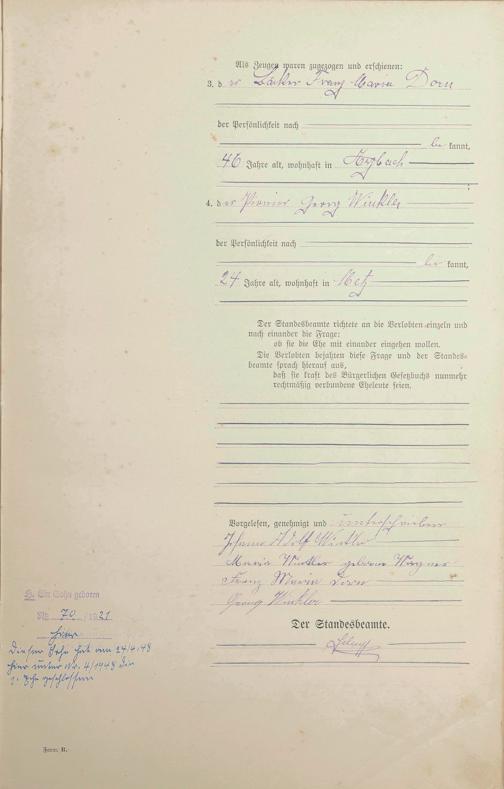 Als Zeugen waren zugezogen und erschienen:
3. der Bäcker Franz Maria Dorn
der Persönlichkeit nach
be kannt,
46 Jahre alt, wohnhaft in
4. der Pionier Georg Winkler
der Persönlichkeit nach
be kannt,
24 Jahre alt, wohnhaft in Metz
Der Standesbeamte richtete an die Verlobten einzeln und
nach einander die Frage:
ob sie die Ehe mit einander eingehen wollen.
Die Verlobten bejahten diese Frage und der Standes-
beamte sprach hierauf aus,
daß sie kraft des Bürgerlichen Gesetzbuchs nunmehr
rechtmäßig verbundene Eheleute seien.
Vorgelesen, genehmigt und unterschrieben
Johann Adolf Winkler
Maria Winkler geborene Wagner
Franz Maria Dorn
Georg Winkler
Der Standesbeamte.
Ein Sohn geboren
Nr. 70 / 1921
hier
Dieser Sohn hat am 24/4.48
hier unter Nr. 4/1948 die
1. Ehe geschlossen
Form. B.